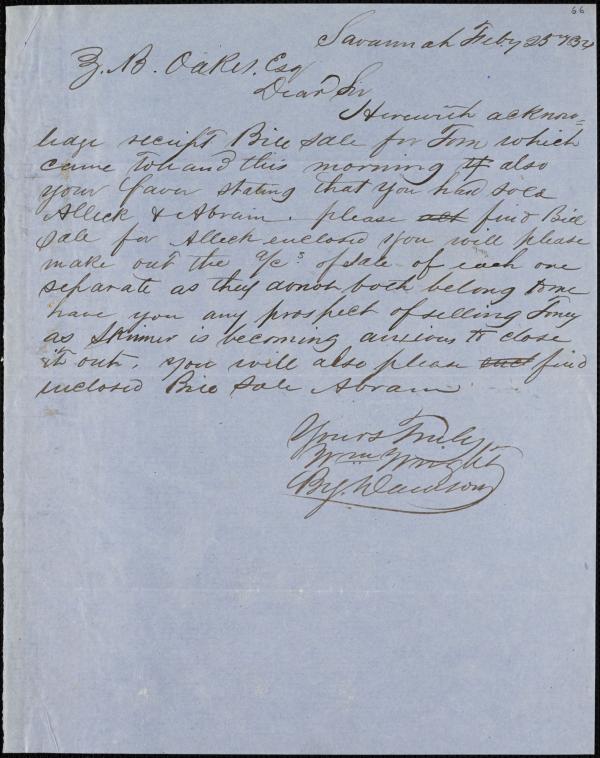 66
Savannah Feby 25th 1854
Z. B. Oakes. Esq
Dear Sir
Herewith acknow=
ledge receipt Bill Sale for Tom which
came to hand this morning also
your favor stating that you had sold
Alleck & Abram. please find Bill
Sale for Alleck enclosed you will please
make out the a/c s of sale of each one
separate as they donot both belong to me
have you any prospect of selling
as Skinner is becoming anxious to close
it out. you will also please find
enclosed Bill Sale Abram
Yours Truly
Wm Wright
By J. Davidson